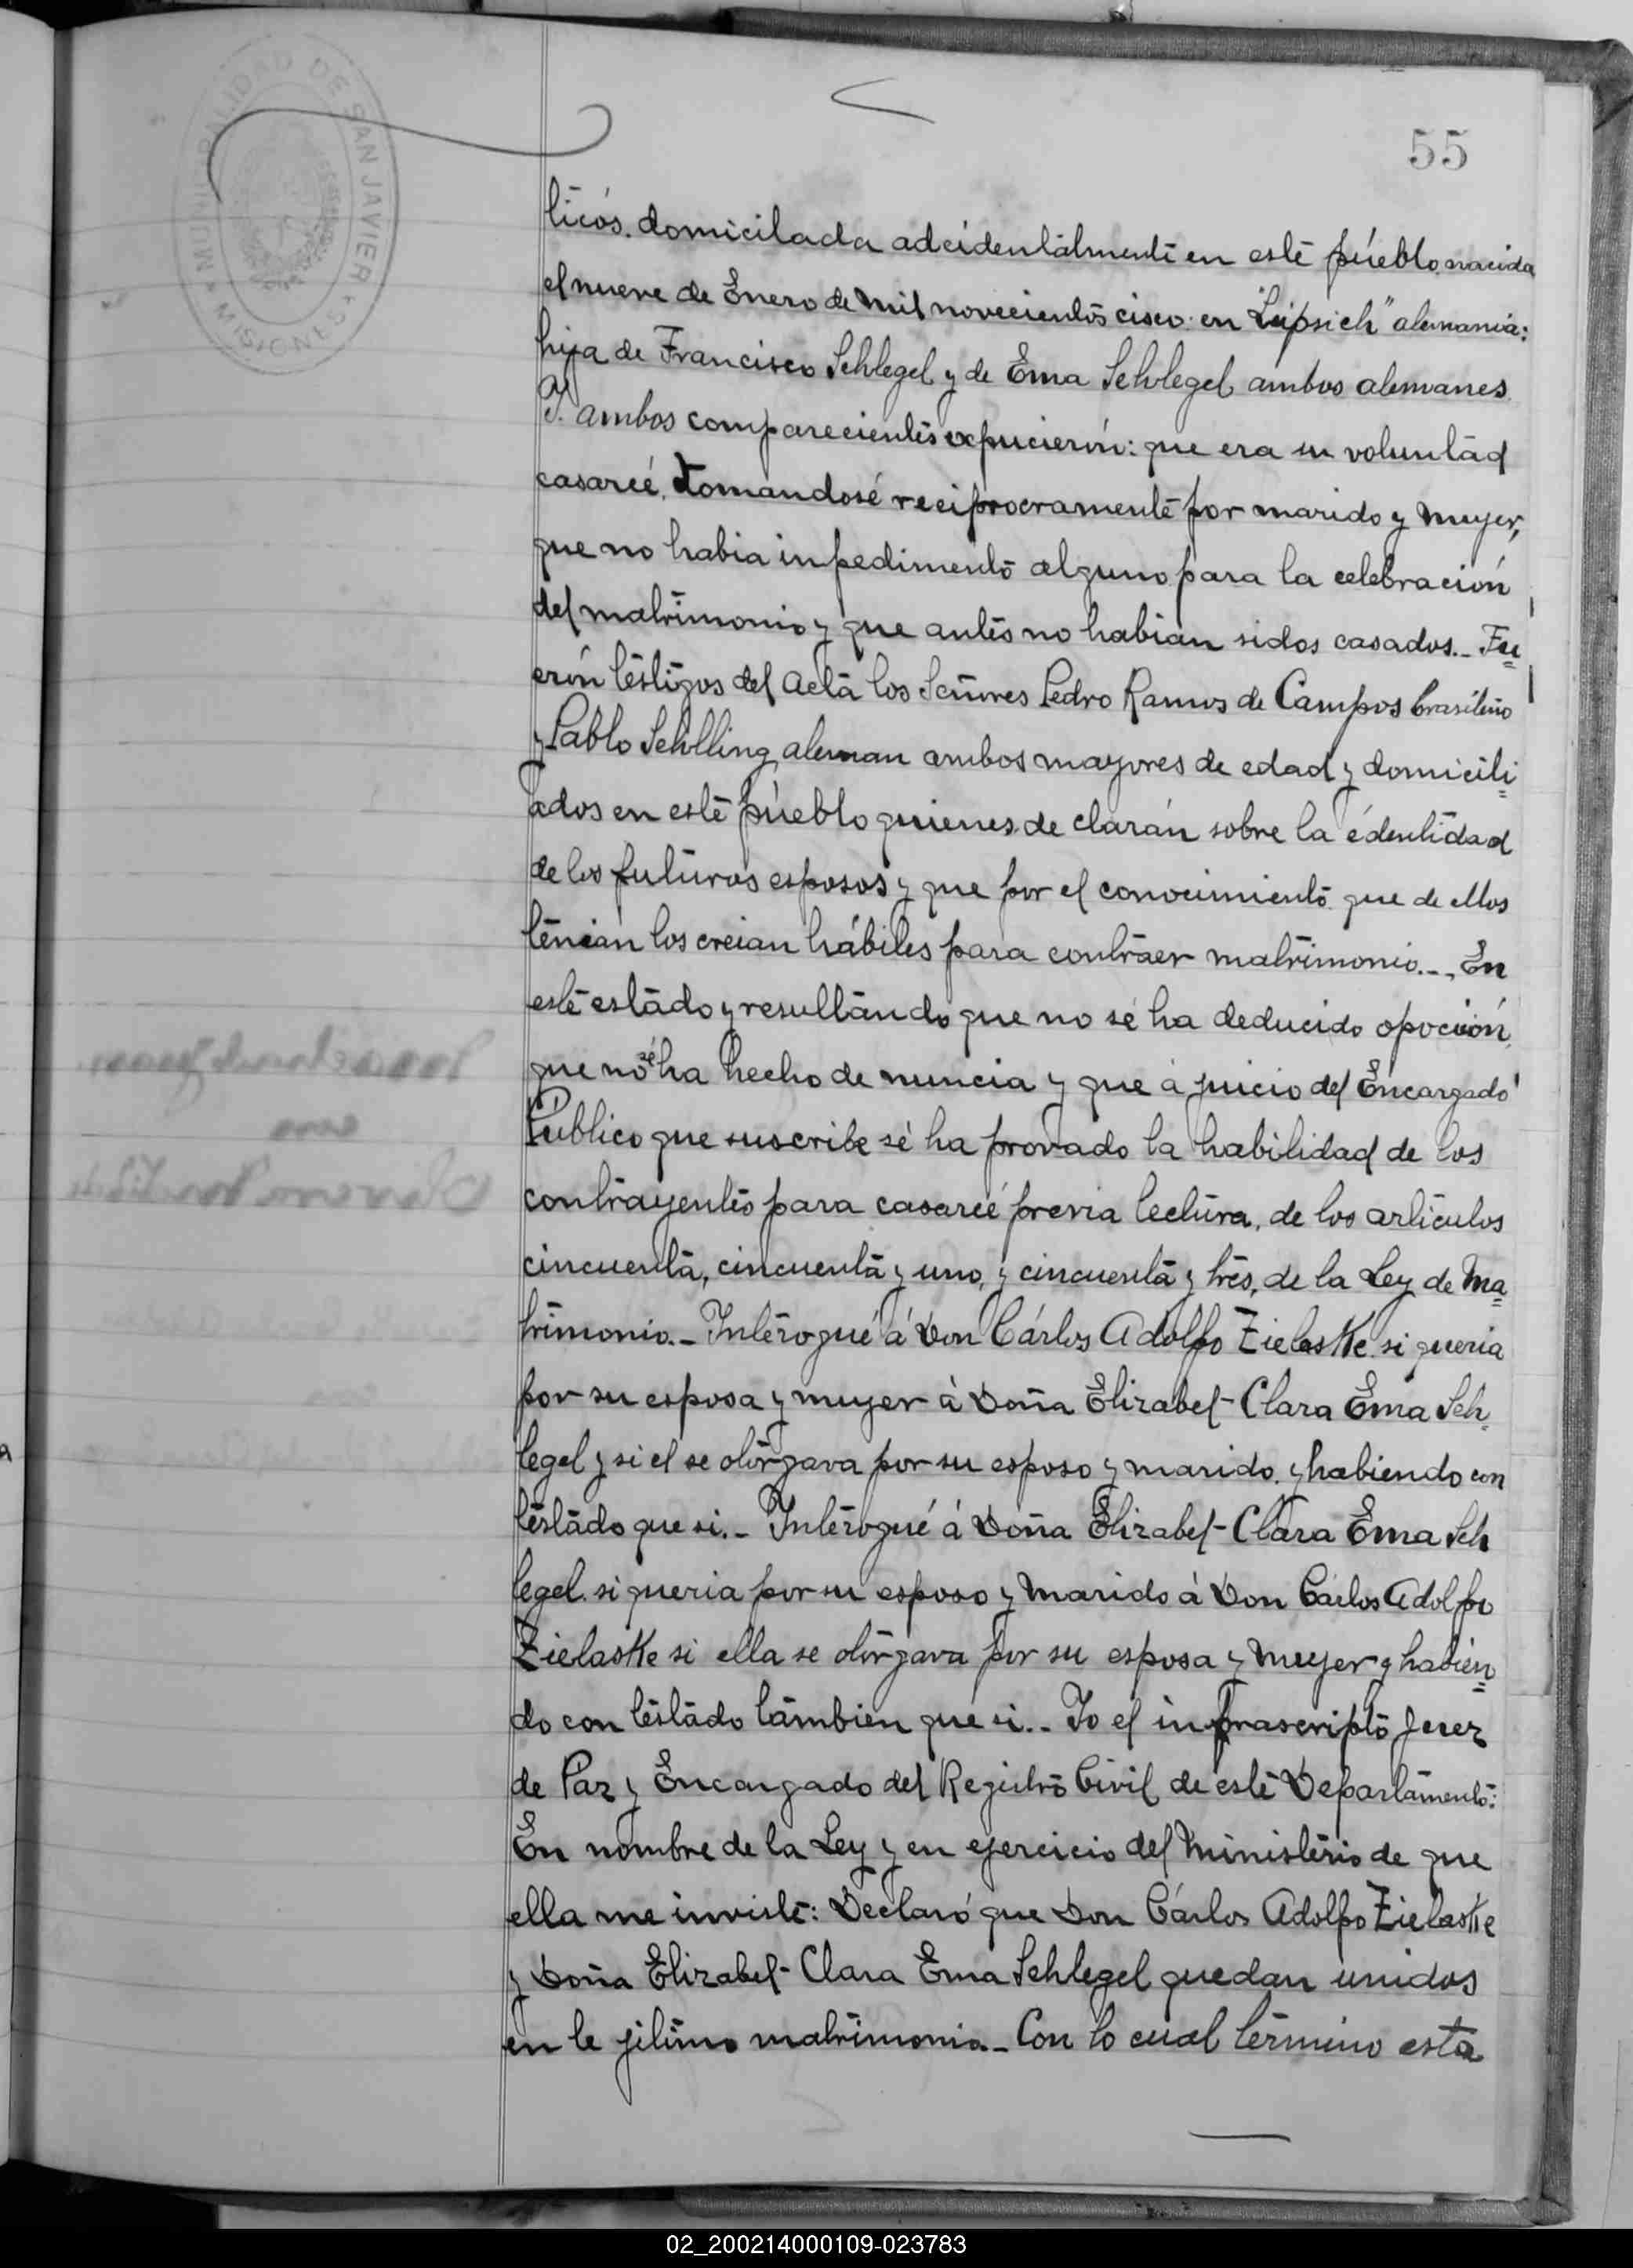 MUNICIPALIDAD DE SAN JAVIER
MISIONES
55
licós. domicilada adcidentalmente en este púeblo, nacida
el nueve de Enero de mil novecientos cisco en "Leipsich" alemania:
hija de Francisco Schlegel y de Ema Schlegel ambos alemanes
Y. ambos comparecientes expucierón: que era su voluntad
casarcé, tomandosé reciprocramente por marido y muger,
que no habia inpedimento alguno para la celebración
del matrimonio y que antes no habian sidos casados._ Fu=
erón testigos del acta los Señores Pedro Ramos de Campos brasileño
y Pablo Schlling aleman ambos mayores de edad y domicili=
ados en este púeblo quienes de clarán sobre la édentidad
de los futuros esposos y que por el conocimiento que de ellos
tenián los creian hábiles para contraer matrimonio._, En
este estado y resultando que no sé ha deducido opoción,
que no sé ha hecho de nuncia y que á juicio del Encargado
Publico que suscribe sé ha provado la habilidad de los
contrayentes para casarcé previa lectura, de los articulos
cincuenta, cincuenta y uno, y cincuenta y tres, de la Ley de Ma=
trimonio._ Interogué á Don Cárlos Adolfo Zielaske si queria
por su esposa y muger á Doña Elizabet-Clara Ema Sch=
legel y si el se otorgava por su esposo y marido y habiendo con
testado que si._ Interogué á Doña Elizabet-Clara Ema Sch
legel si queria por su esposo y marido á Don Cárlos Adolfo
Zielaske si ella se otorgava por su esposa y muger y habién=
do con testado tambien que si._ Yo el infrascripto Juez
de Paz y Encargado del Registro Civil de este Departamento:
En nombre de la Ley y en egercicio del ministerio de que
ella me inviste: Declaró que Don Cárlos Adolfo Zielaske
y Doña Elizabet-Clara Ema Schlegel quedan unidos
en le jitimo matrimonio._ Con lo cual termino esta
02_200214000109-023783